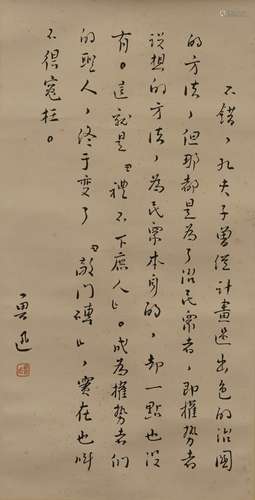 不錯，孔夫子曾經計畫過出色的治國
的方法，但那都是為了治民衆者，即權勢者
設想的方法，為民衆本身的，却一點也沒
有。這就是『禮不下庶人』。成為權勢者們
的聖人，終于變了『敲門磚』，實在也叫
不得冤枉。
魯迅